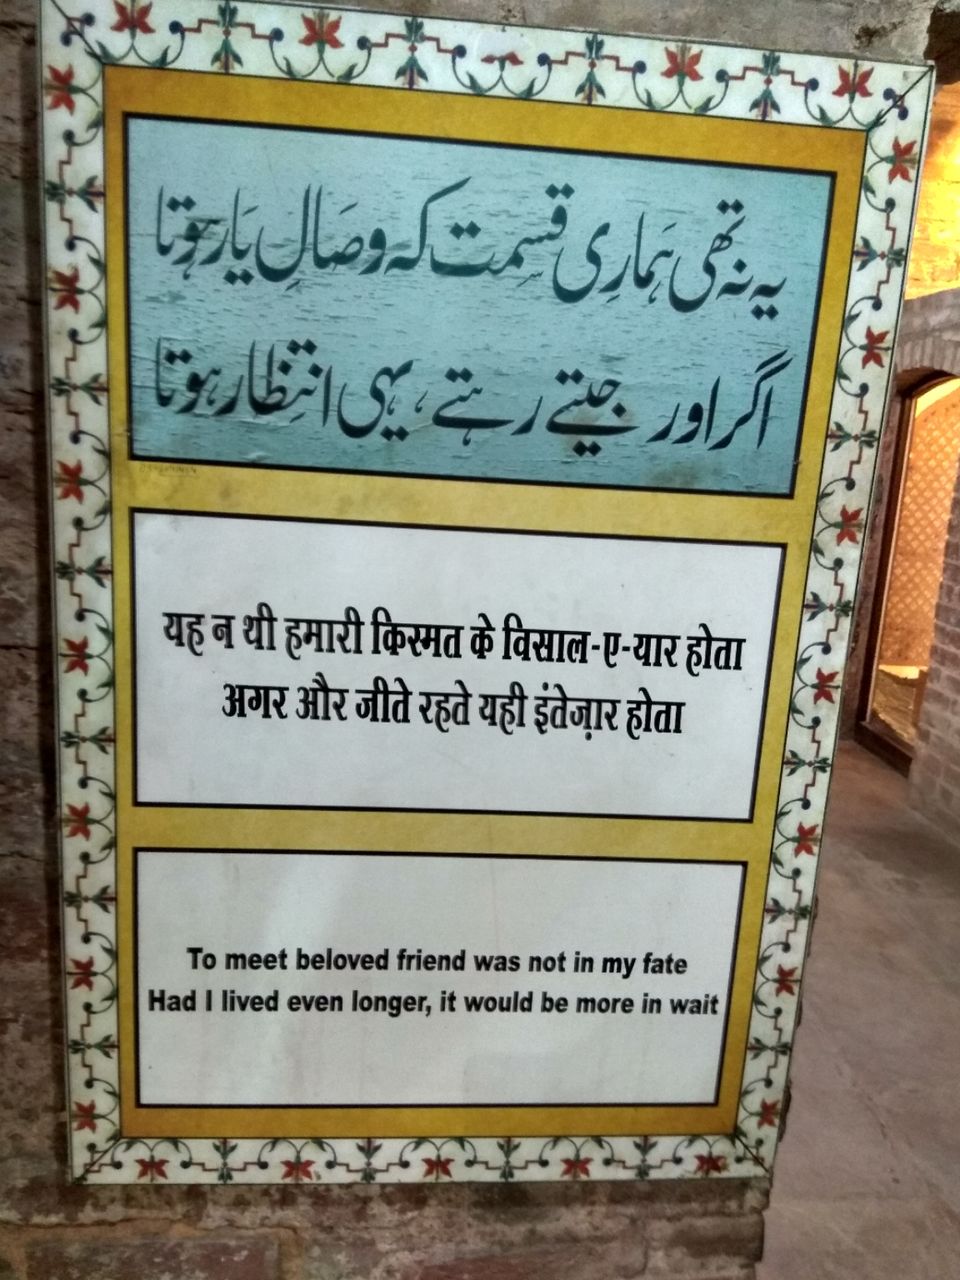 یہ نہ تھی ہماری قسمت کہ وصالِ یار ہوتا
اگر اور جیتے رہتے ، یہی انتظار ہوتا
यह न थी हमारी किस्मत के विसाल-ए-यार होता
अगर और जीते रहते यही इंतेज़ार होता
To meet beloved friend was not in my fate
Had I lived even longer, it would be more in wait